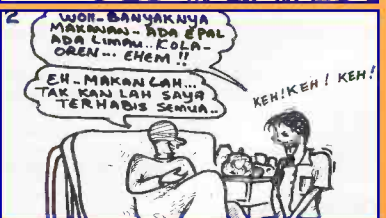 2
WOH-BANYAKNYA
MAKANAN-ADA EPAL
ADA LIMAU.. KOLA-
OREN... EHEM !!
EH-MAKAN LAH...
TAK KAN LAH SAYA
TERHABIS SEMUA..
KEH! KEH! KEH!